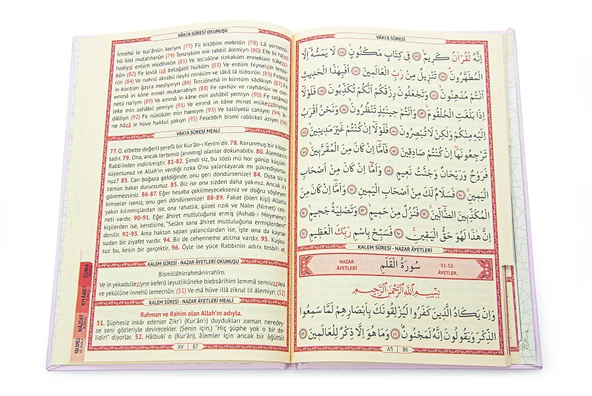 VÂKIA SÛRESİ OKUNUŞU
İnnehû le kur'ânün keriym (77) Fii kitâbim meknûn (78) Lâ yemessü-
hû illel mutahherûn (79) Tenziylüm mir rabbil âlemiyn (80) Efe bi hâzel
hadiysi entüm müdhinûn (81) Ve tec'alûne rizkaküm enneküm tükezzi-
bûn (82) Fe levlâ izâ belağatil hulkûm (83) Ve entüm hıyneizin tenzu-
rûn (84) Ve nahnü akrabü ileyhi minküm ve lâkil lâ tübsırûn (85) Felevlâ
in küntüm ğayra mediyniyn (86) Terciûnehâ in küntüm sâdikıyn (87) Fe
emmâ in kâne minel mukarrabiyn (88) Fe ravhüv ve rayhânüv ve cen-
netü na'iym (89) Ve emmâ in kâne min ashâbil yemiyn (90) Fe selâmül
leke min ashâbil yemiyn (91) Ve emmâ in kâne minel mükezzibiyned
dâlliyn (92) Fe nüzülüm min hamiym (93) Ve tasliyetü cahıym (94) İn-
ne hâzâ le hüve hakkul yakıyn (95) Fesebbih bismi rabbikel azıym (96)
VÂKIA SÛRESİ MEALİ
77. O, elbette değerli şerefli bir Kur'ân-ı Kerim'dir. 78. Korunmuş bir kitap-
tadır. 79. Ona, ancak tertemiz (arınmış) olanlar dokunabilir. 80. Âlemlerin
Rabb'inden indirilmiştir. 81-82. Şimdi siz, bu sözü mü hor görüp küçüm-
süyorsunuz ve Allah'ın verdiği rızka O'nu yalanlayarak mı şükrediyorsu-
nuz? 83. Can boğaza geldiğinde, onu geri döndürsenize! 84. Oysa siz o
zaman bakar durursunuz. 85. Biz ise ona sizden daha yakınız. Ancak siz
göremezsiniz. 86-87. Eğer hesaba çekilmeyecekseniz ve doğru söyleyen
kimseler iseniz, onu geri döndürsenize! 88-89. Fakat (ölen kişi) Allah'a
yakın kılınmışlardan ise, ona rahatlık, güzel rızık ve Naîm (Nimet) cen-
neti vardır. 90-91. Eğer âhiret mutluluğuna ermiş (Ashab-ı Meymene)
kişilerden ise, kendisine, "Selâm sana âhiret mutluluğuna ermişlerden!"
denir. 92-93. Ama haktan sapan yalancılardan ise, işte ona da kaynar
sudan bir ziyafet vardır. 94. Bir de cehenneme atılma vardır. 95. Kuşku-
suz bu, kesin bir gerçektir. 96. Öyle ise yüce Rabbinin adını tesbih et.
KALEM SÛRESİ - NAZAR ÂYETLERİ OKUNUŞU
Bismillâhirrahmânirrahîm.
Ve in yekadulleziyne keferû leyuzlikûneke biebsârihim lemmâ semiuzzikra
ve yekûlûne innehû lemecnûn. (51) Ve mâ hüve illâ zikrul lil âlemiyn. (52)
KALEM SÛRESİ - NAZAR ÂYETLERİ MEALİ
Rahman ve Rahim olan Allah'ın adıyla.
51. Şüphesiz inkâr edenler Zikr'i (Kur'ân'ı) duydukları zaman nerede-
se seni gözleriyle devirecekler. (Senin için,) "Hiç şüphe yok o bir de-
lidir!" diyorlar. 52. Hâlbuki o (Kur'ân), âlemler için ancak bir öğüttür.
٨٧ 87
VÂKIA SÛRESİ
إِنَّهُ لَقُرْاٰنٌ كَرِيمٌ ۝ فِي كِتَابٍ مَكْنُونٍ ۝ لَا يَمَسُّهُ إِلَّا
الْمُطَهَّرُونَ ۝ تَنْزِيلٌ مِنْ رَبِّ الْعَالَمِينَ ۝ أَفَبِهٰذَا الْحَدِيثِ
أَنْتُمْ مُدْهِنُونَ ۝ وَتَجْعَلُونَ رِزْقَكُمْ أَنَّكُمْ تُكَذِّبُونَ ۝ فَلَوْلَا
إِذَا بَلَغَتِ الْحُلْقُومَ ۝ وَأَنْتُمْ حِينَئِذٍ تَنْظُرُونَ ۝ وَنَحْنُ أَقْرَبُ
إِلَيْهِ مِنْكُمْ وَلٰكِنْ لَا تُبْصِرُونَ ۝ فَلَوْلَا إِنْ كُنْتُمْ غَيْرَ مَدِينِينَ ۝
تَرْجِعُونَهَا إِنْ كُنْتُمْ صَادِقِينَ ۝ فَأَمَّا إِنْ كَانَ مِنَ الْمُقَرَّبِينَ ۝
فَرَوْحٌ وَرَيْحَانٌ وَجَنَّتُ نَعِيمٍ ۝ وَأَمَّا إِنْ كَانَ مِنْ أَصْحَابِ
الْيَمِينِ ۝ فَسَلَامٌ لَكَ مِنْ أَصْحَابِ الْيَمِينِ ۝ وَأَمَّا إِنْ كَانَ مِنَ
الْمُكَذِّبِينَ الضَّالِّينَ ۝ فَنُزُلٌ مِنْ حَمِيمٍ ۝ وَتَصْلِيَةُ جَحِيمٍ ۝
إِنَّ هٰذَا لَهُوَ حَقُّ الْيَقِينِ ۝ فَسَبِّحْ بِاسْمِ رَبِّكَ الْعَظِيمِ ۝
KALEM SÛRESİ - NAZAR ÂYETLERİ
NAZAR ÂYETLERİ
سُورَةُ الْقَلَمِ
51-52. ÂYETLER.
بِسْمِ اللّٰهِ الرَّحْمٰنِ الرَّحِيمِ
وَإِنْ يَكَادُ الَّذِينَ كَفَرُوا لَيُزْلِقُونَكَ بِأَبْصَارِهِمْ لَمَّا سَمِعُوا
الذِّكْرَ وَيَقُولُونَ إِنَّهُ لَمَجْنُونٌ ۝ وَمَا هُوَ إِلَّا ذِكْرٌ لِلْعَالَمِينَ ۝
٨٦ 86